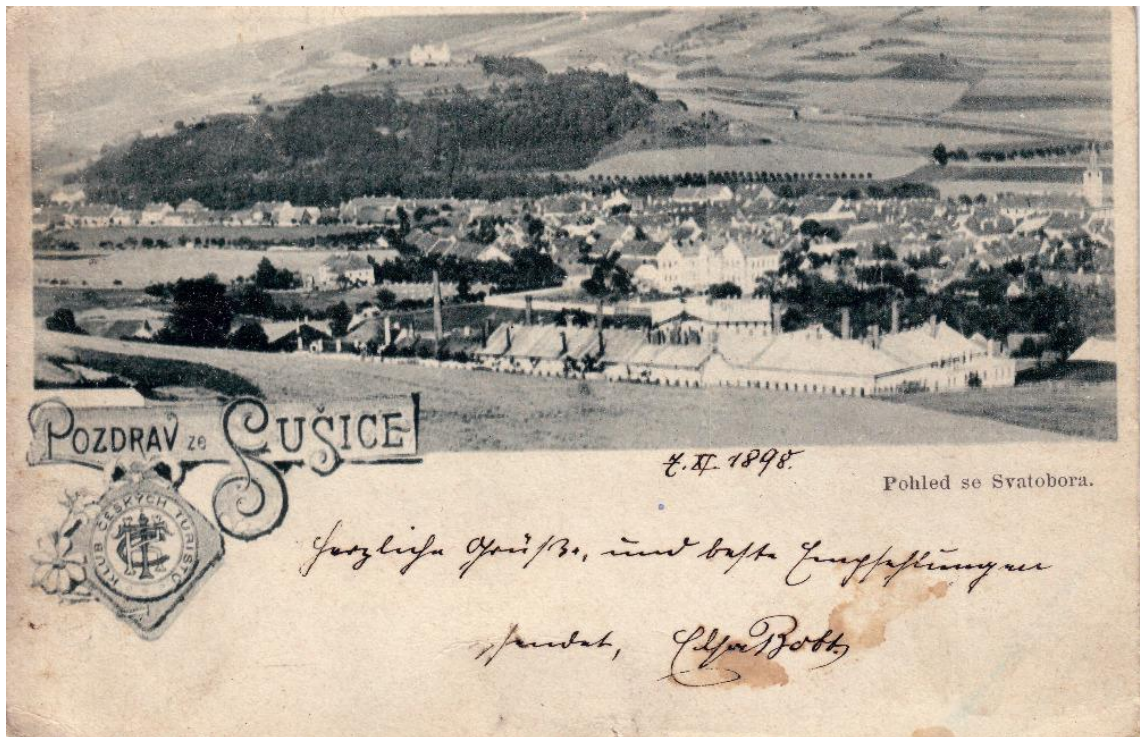 POZDRAV ze SUŠICE
KLUB ČESKÝCH TURISTŮ
7. XI. 1898.
Pohled se Svatobora.
Herzliche Grüße, und beste Empfehlungen
sendet,